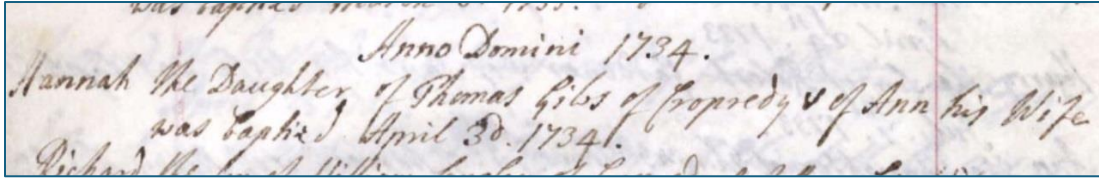 was baptized March 3d. 1733.
Anno Domini 1734.
Hannah the Daughter of Thomas Gibs of Cropredy & of Ann his Wife
was baptizd April 3d. 1734.
Richard the Son of William